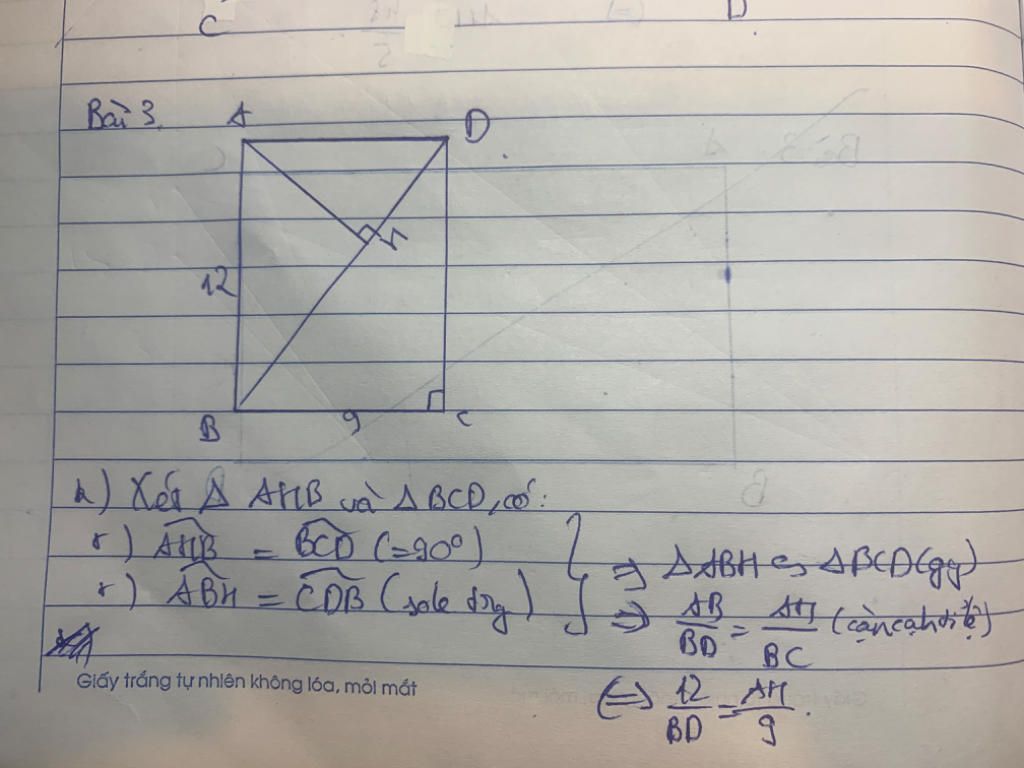 C D
Bài 3.
A D
12
B 9 C
a) Xét Δ AHB và Δ BCD, có:
+) AHB = BCD (=90°)
+) ABH = CDB (sole trg)
⇒ Δ ABH ∽ Δ BCD (gg)
⇒ AB/BD = AH/BC
⇔ 12/BD = AH/9.
Giấy trắng tự nhiên không lóa, mỏi mắt